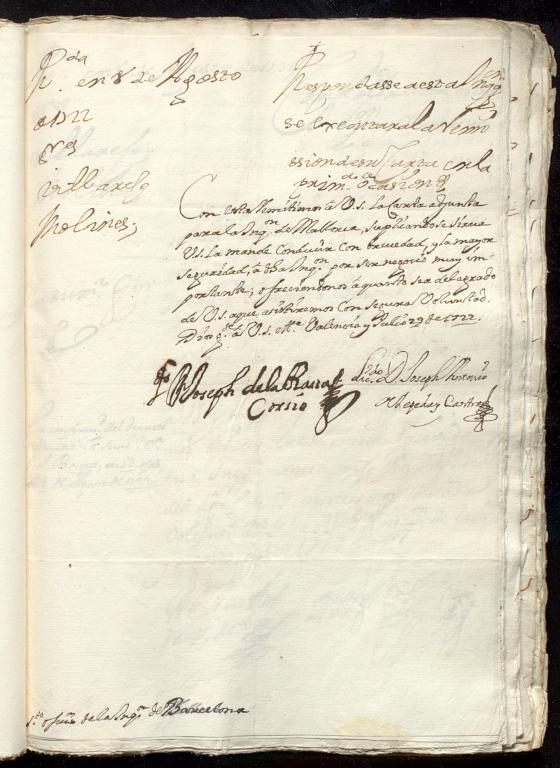 R.da en 8 de Agosto
1722
S.res
Villarelo
Molines;
Respondasse a esta Inq.on
se executara la Remi
ssion de su Carta en la
prim.a ocasion
Con esta Remitimos à V.S. la Carta adjunta
para la Inq.on de Mallorca, suplicando se sirva
V.S. la mande Conducir con brevedad, y la mayor
seguridad, à dha Inq.on por ser negocio muy im
portante; ofreciendonos à quanto sea del agrado
de V.S. a que asistiremos Con segura Voluntad.
Dios g.e à V.S. m.s a.s Valencia y Julio 29 de 1722.
Joseph de la
Corsio
Lic.do D. Joseph Antonio
y Castro
S.to off.io de la Inq.on de Barcelona